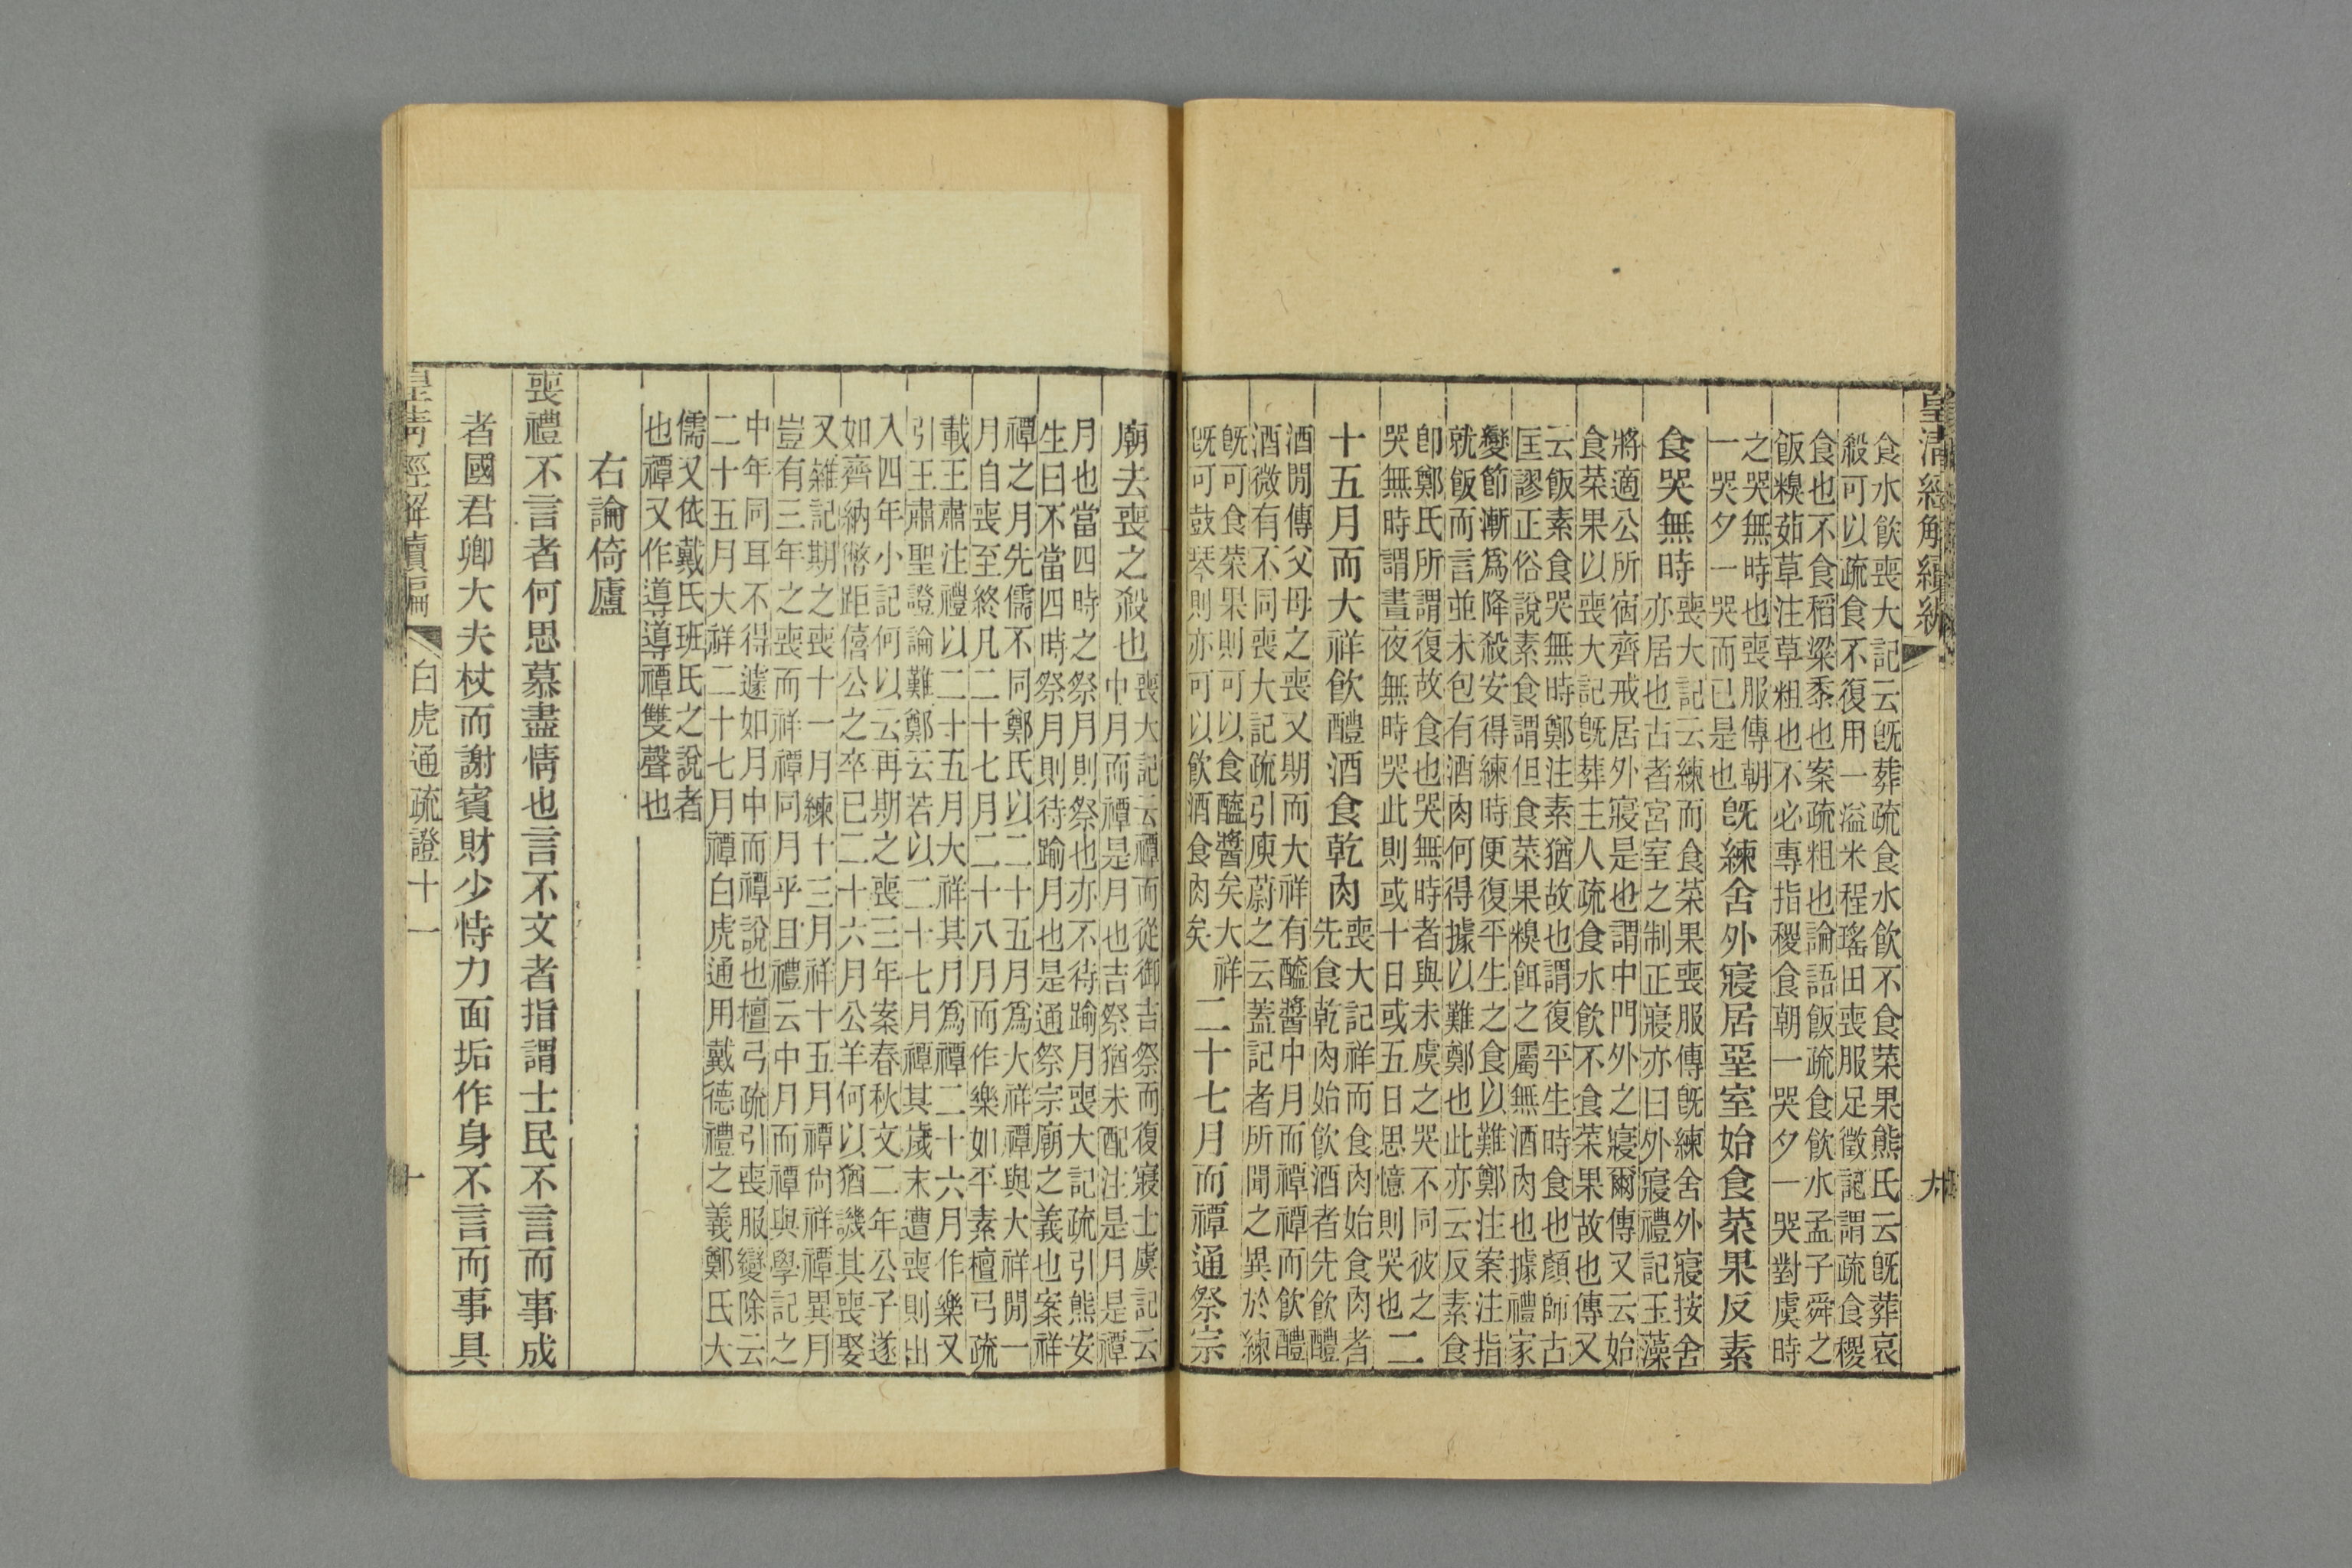 皇清經解續編
九
食水飲喪大記云旣葬疏食水飲不食菜果熊氏云旣葬哀
殺可以疏食不復用一溢米程瑤田喪服足徵記謂疏食稷
食也不食稻粱黍也案疏粗也論語飯疏食飲水孟子舜之
飯糗茹草注草粗也不必專指稷食朝一哭夕一哭對虞時
之哭無時也喪服傳朝
一哭夕一哭而已是也
旣練舍外寢居堊室始食菜果反素
食哭無時
喪大記云練而食菜果喪服傳旣練舍外寢按舍
亦居也古者宮室之制正寢亦曰外寢禮記玉藻
將適公所宿齊戒居外寢是也謂中門外之寢爾傳又云始
食菜果以喪大記旣葬主人疏食水飲不食菜果故也傳又
云飯素食哭無時鄭注素猶故也謂復平生時食也顏師古
匡謬正俗說素食謂但食菜果糗餌之屬無酒肉也據禮家
變節漸爲降殺安得練時便復平生之食以難鄭注案注指
就飯而言並未包有酒肉何得據以難鄭也此亦云反素食
卽鄭氏所謂復故食也哭無時者與未虞之哭不同彼之
哭無時謂晝夜無時哭此則或十日或五日思憶則哭也
二
十五月而大祥飲醴酒食乾肉
喪大記祥而食肉始食肉者
先食乾肉始飲酒者先飲醴
酒閒傳父母之喪又期而大祥有醯醬中月而禫禫而飲醴
酒微有不同喪大記疏引庾蔚之云蓋記者所聞之異於練
旣可食菜果則可以食醯醬矣大祥
旣可鼓琴則亦可以飲酒食肉矣
二十七月而禫通祭宗
廟去喪之殺也
喪大記云禫而從御吉祭而復寢士虞記云
中月而禫是月也吉祭猶未配注是月是禫
月也當四時之祭月則祭也亦不待踰月喪大記疏引熊安
生曰不當四時祭月則待踰月也是通祭宗廟之義也案祥
禫之月先儒不同鄭氏以二十五月爲大祥禫與大祥閒一
月自喪至終凡二十七月二十八月而作樂如平素檀弓疏
載王肅注禮以二十五月大祥其月爲禫二十六月作樂又
引王肅聖證論難鄭云若以二十七月禫其歲末遭喪則出
入四年小記何以云再期之喪三年案春秋文二年公子遂
如齊納幣距僖公之卒已二十六月公羊何以猶譏其喪娶
又雜記期之喪十一月練十三月祥十五月禫尙祥禫異月
豈有三年之喪而祥禫同月乎且禮云中月而禫與學記之
中年同耳不得遽如月中而禫說也檀弓疏引喪服變除云
二十五月大祥二十七月禫白虎通用戴德禮之義鄭氏大
儒又依戴氏班氏之說者
也禫又作導導禫雙聲也
右論倚廬
喪禮不言者何思慕盡情也言不文者指謂士民不言而事成
者國君卿大夫杖而謝賓財少恃力面垢作身不言而事具
皇清經解續編
白虎通疏證十一
十